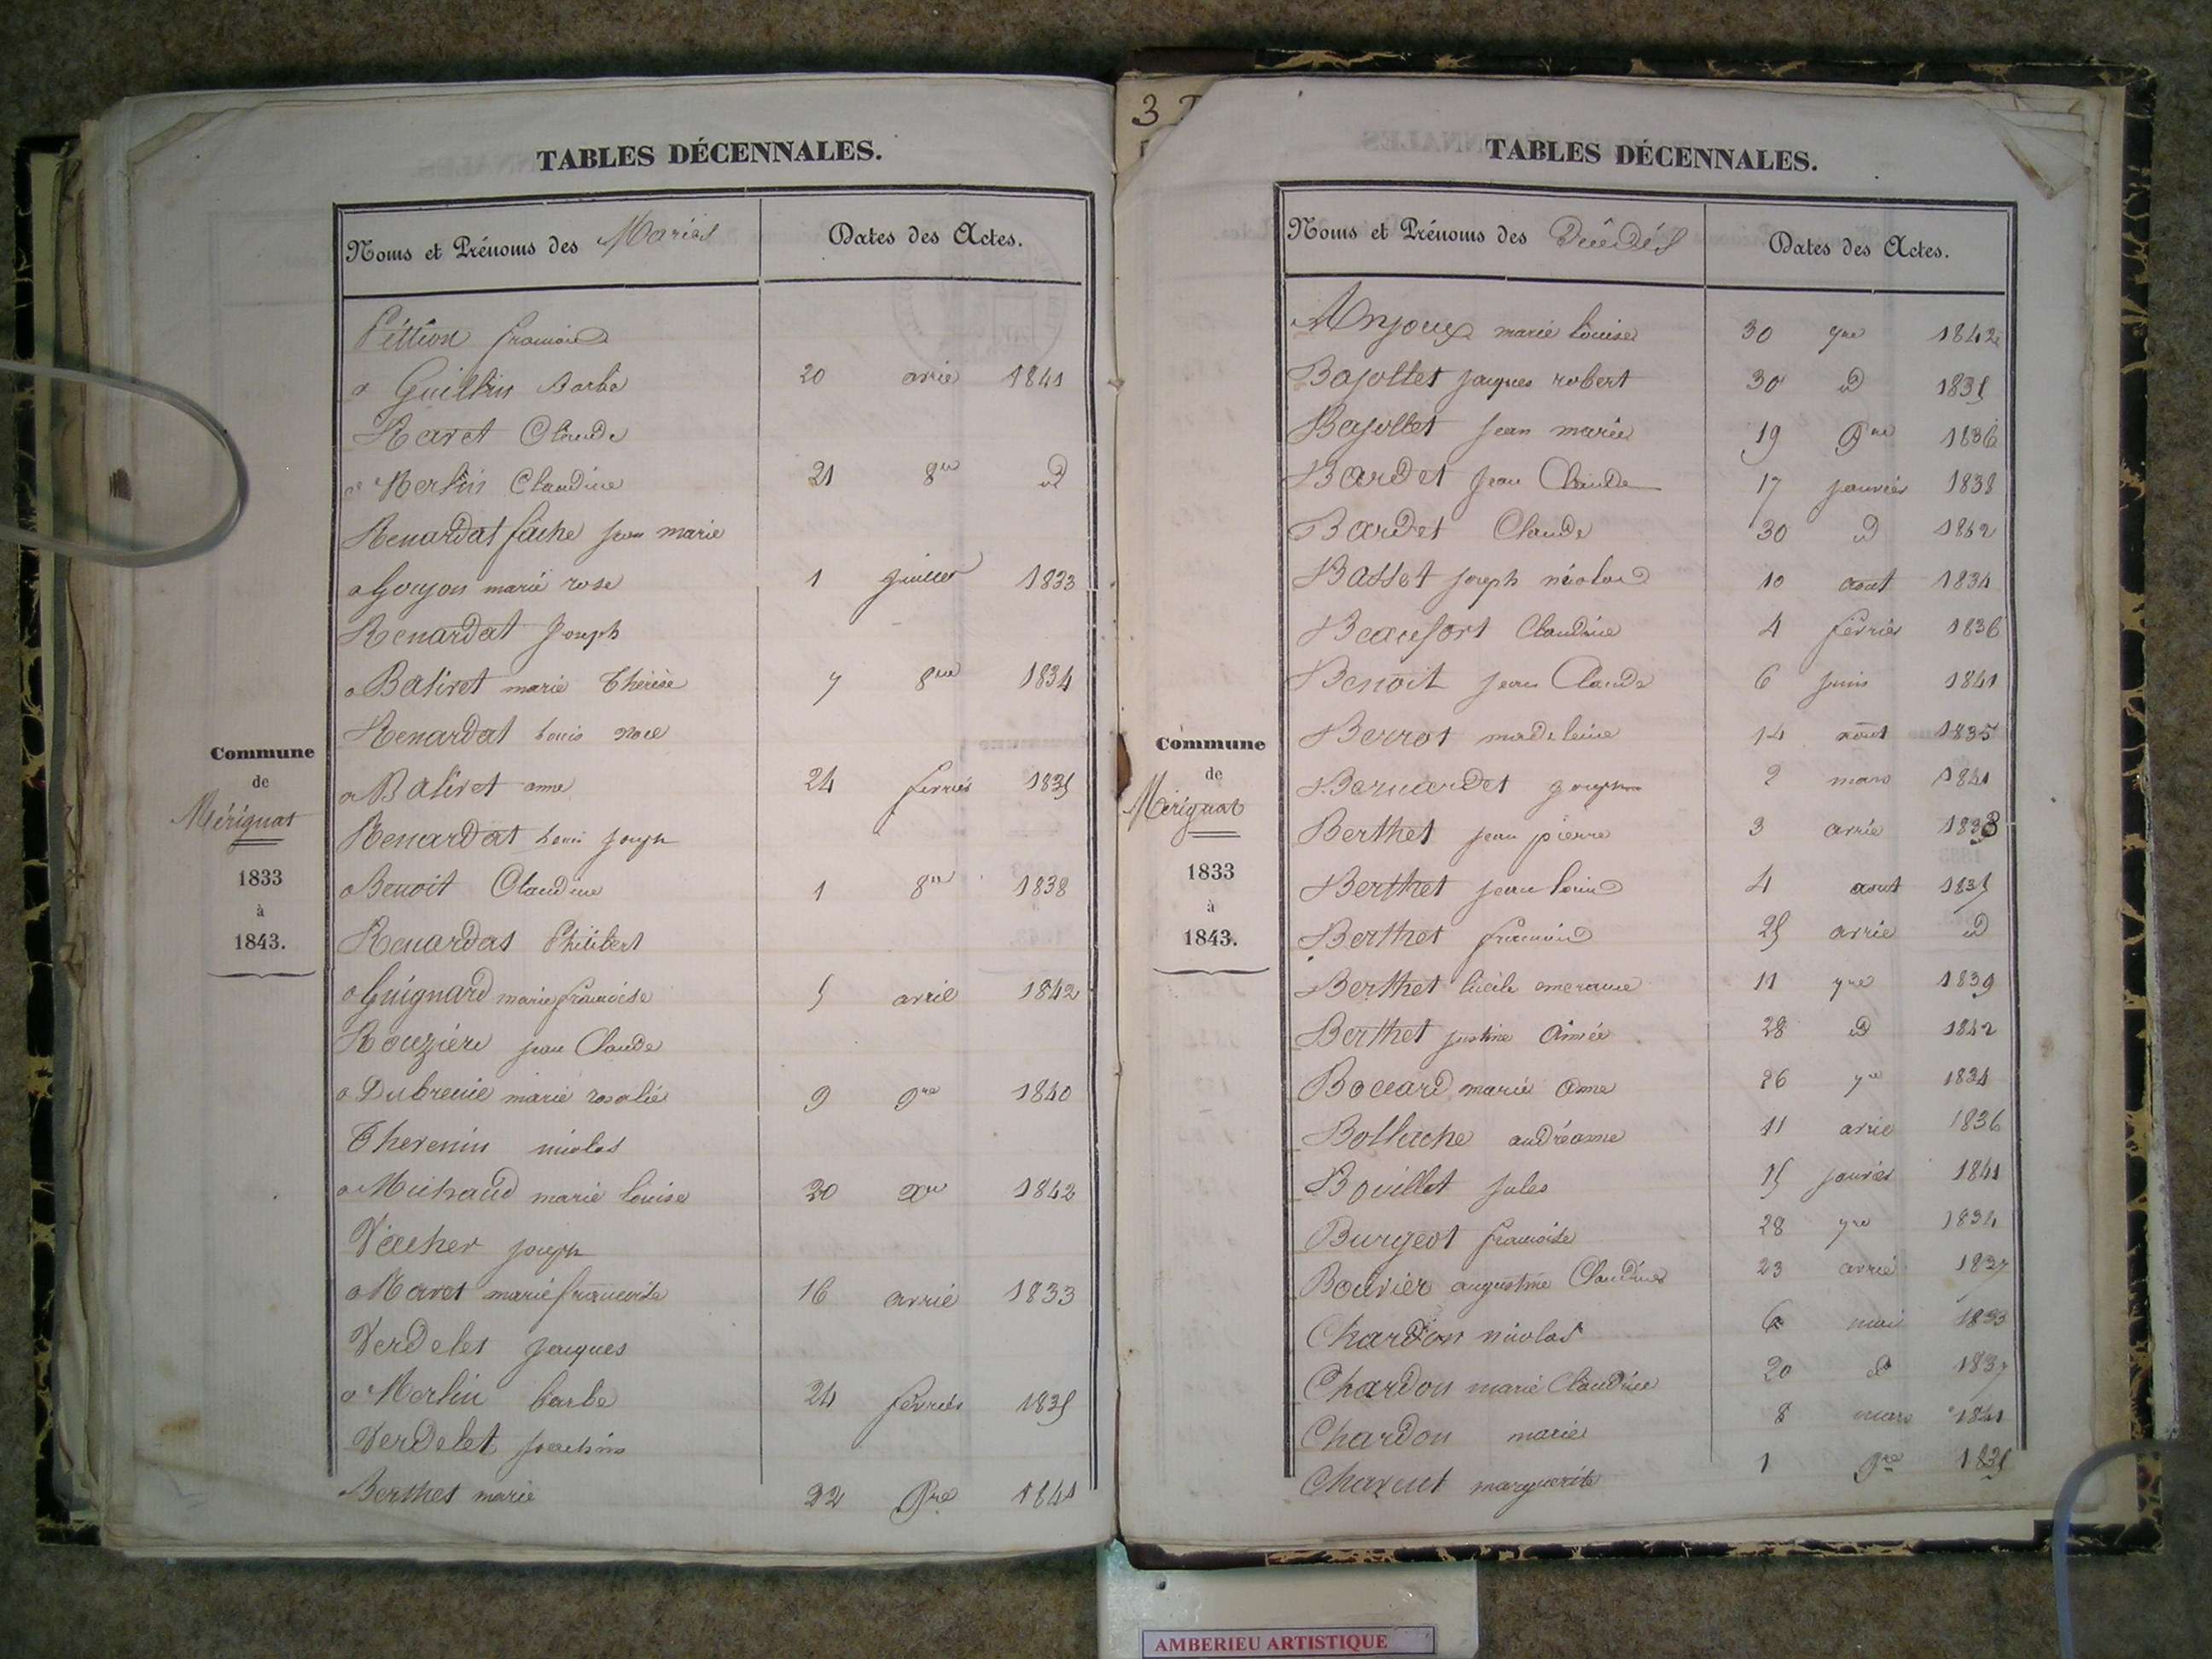 TABLES DÉCENNALES.
Noms et Prénoms des Mariés Dates des Actes.
Pittion francois
a Guillin Barbe 20 avril 1841
Ravet Claude
a Merlin Claudine 21 8re id
Renardat fâche jean marie
a Goujon marie rose 1 juillet 1833
Renardat Joseph
a Balivet marie Thérèse 7 8bre 1834
Renardat Louis noel
a Balivet anne 24 fevrier 1835
Renardat Louis Joseph
a Benoit Claudine 1 8re 1838
Renardat Philibert
a Guignard marie francoise 5 avril 1842
Rouzière jean Claude
a Dubreuil marie rosalie 9 9re 1840
Thevenin nicolas
a Michaud marie louise 20 Xre 1842
Vacher joseph
a Maret marie francoise 16 avril 1833
Verdelet Jacques
a Merlin barbe 24 fevrier 1835
Verdelet joachim
Berthet marie 22 9re 1841
Commune
de
Mérignat
1833
à
1843.
3
TABLES DÉCENNALES.
Noms et Prénoms des Décédés Dates des Actes.
Anjoux marie louise 30 7re 1842
Bajollet jacques robert 30 id 1835
Bajollet jean marie 19 9re 1836
Bardet jean Claude 17 janvier 1838
Bardet Claude 30 id 1842
Basset joseph nicolas 10 aout 1834
Beaufort Claudine 4 fevrier 1836
Benoit jean Claude 6 juin 1841
Berrot madeleine 14 aout 1835
Bernardet joseph 2 mars 1841
Berthet jean pierre 3 avril 1838
Berthet jean louis 4 aout 1835
Berthet francois 25 avril id
Berthet lucile 11 7re 1839
Berthet justine Aimée 28 id 1842
Boccard marie anne 26 7re 1834
Bolluche andréanne 11 avril 1836
Bouillet jules 15 janvier 1841
Burgeot francoise 28 7re 1834
Bouvier augustine Claudine 23 avril 1837
Chardon nicolas 6 mai 1833
Chardon marie Claudine 20 id 1837
Chardon marie 8 mars 1841
Charent marguerite 1 9re 1835
Commune
de
Mérignat
1833
à
1843.
AMBERIEU ARTISTIQUE